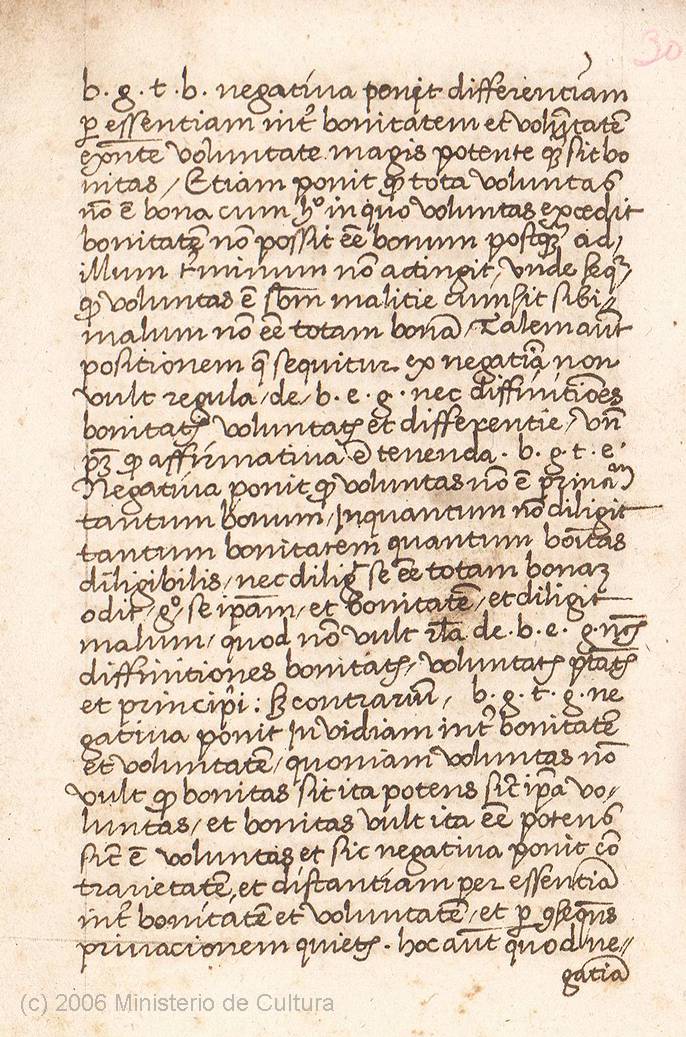 30
b. g. t. b. negativa ponit differentiam
p̱ essentiam int̃ bonitatem et volūtatē
exñte voluntate magis potente q̃ sit bo
nitas / Etiam ponit q̃ tota voluntas
nō ē bona cum hº in quo voluntas excedit
bonitatē nō possit eē bonum postq̃ ad /
illum t̃minum nō adtingit / vnde seq̃
q̃ voluntas ē sbm̃ malitie cum sit sibi //
malum nō eē totam bonā / Talem aūt
positionem q̃ sequitur ex negatīa non
vult regula / de / b. e. g. nec diffinitiões
bonitatꝭ voluntatꝭ et differentie / vñ
pꝫ q̃ affirmativa ē tenenda. b. g. t. e.
Negativa ponit q̃ voluntas nō ē
tantum bonum / Inquantum nō diligit
tantum bonitatem quantum boītas
diligibilis / nec dilig̃ se eē totam bonaꝫ
odit / gº / se ip̃am / et bonitatē / et diligit
malum / quod nō vult de. b. e. g.
diffinitiones bonitatꝭ / voluntatꝭ p̃tatꝭ
et principĩ : sꝫ contrariū / b. g. t. g. ne
gativa ponit Invidiam int̃ bonitatē
et voluntatē / quoniam voluntas nō
vult q̃ bonitas sit ita potens sic̃ ip̃a vo-
luntas / et bonitas vult ita eē potens
sic̃ ē voluntas et sic negativa ponit cō
trarietatē, et distantiam per essentiā
int̃ bonitatē et voluntatē / et p̱ ꝯseq̃ns
privacionem quietꝭ. hoc aūt quod / ne //
gatīa
(c) 2006 Ministerio de Cultura